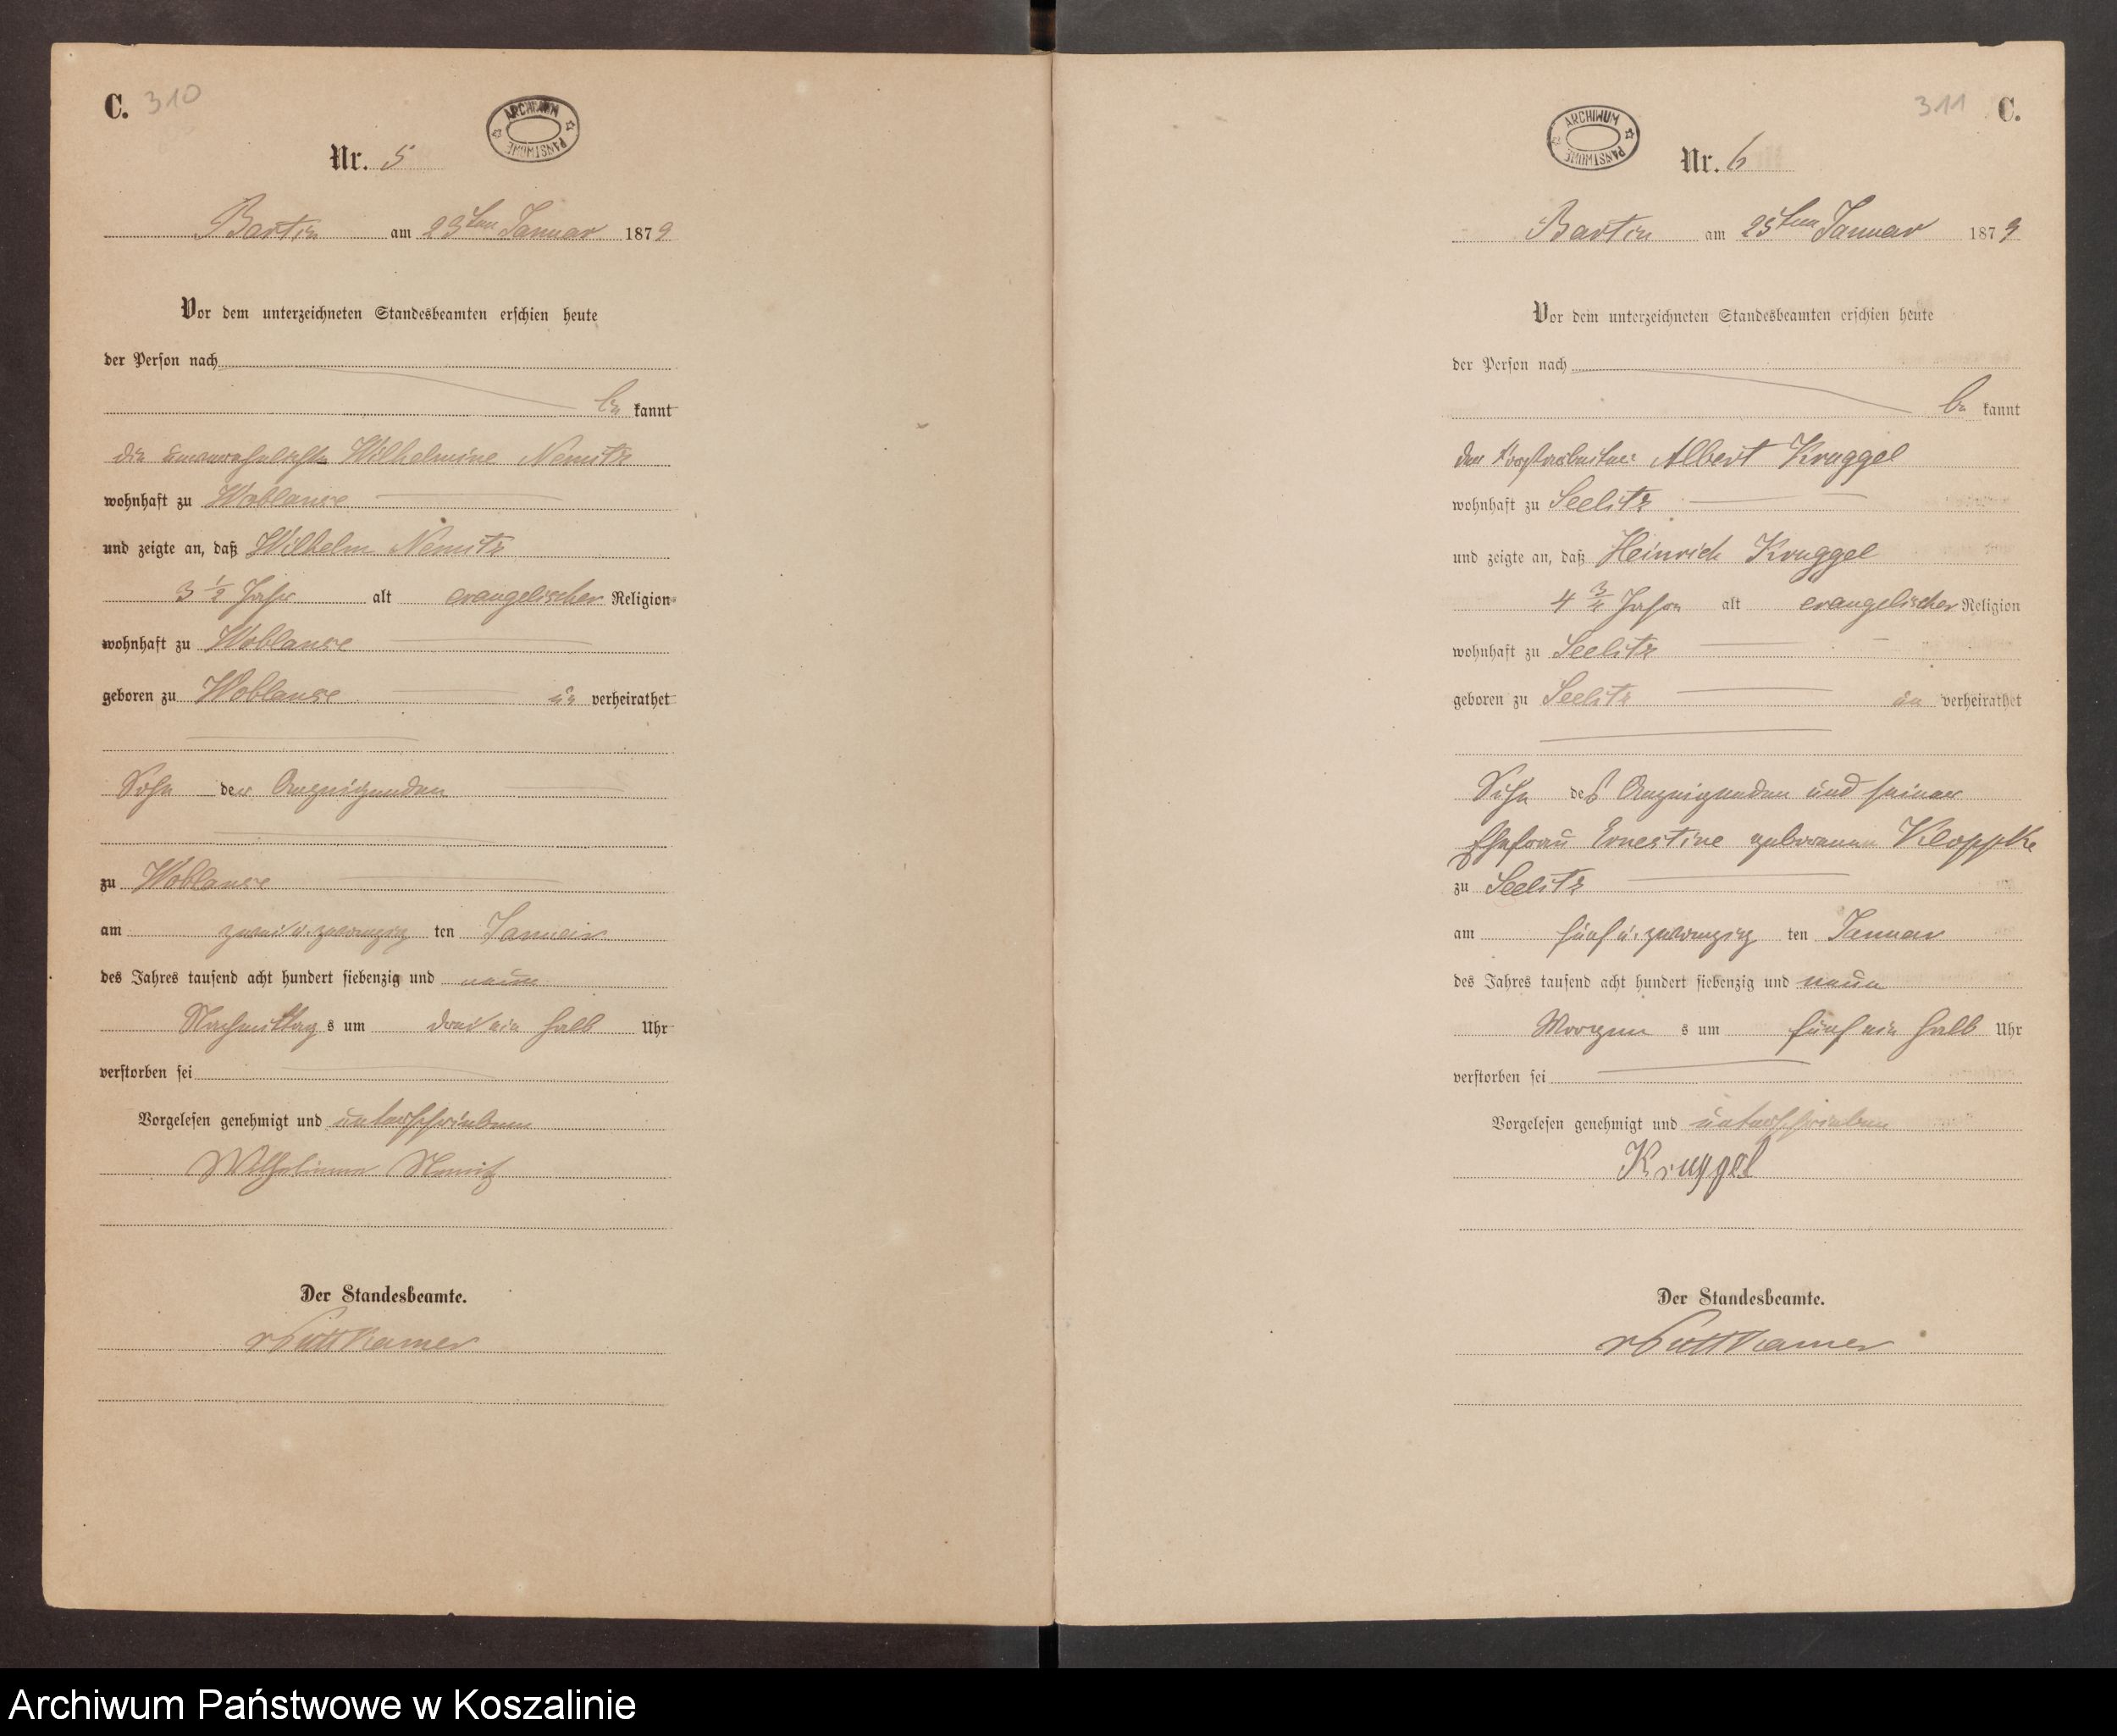 C. 310
ARCHIWUM PAŃSTWOWE
Nr. 5
Bartin am 23ten Januar 1879
Vor dem unterzeichneten Standesbeamten erschien heute
der Person nach
be kannt
die unverehelichte Wilhelmine Nemitz
wohnhaft zu Woblanse
und zeigte an, daß Wilhelm Nemitz
3 1/2 Jahr alt evangelischer Religion
wohnhaft zu Woblanse
geboren zu Woblanse un verheirathet
Sohn der Anzeigenden
zu Woblanse
am zwei u. zwanzig ten Januar
des Jahres tausend acht hundert siebenzig und neun
Nachmittag s um drei ein halb Uhr
verstorben sei
Vorgelesen genehmigt und unterschrieben
Wilhelmine Nemitz
Der Standesbeamte.
v Puttkamer
311 C.
ARCHIWUM PAŃSTWOWE
Nr. 6
Bartin am 25ten Januar 1879
Vor dem unterzeichneten Standesbeamten erschien heute
der Person nach
be kannt
der Forstarbeiter Albert Kruggel
wohnhaft zu Seelitz
und zeigte an, daß Heinrich Kruggel
4 3/4 Jahre alt evangelischer Religion
wohnhaft zu Seelitz
geboren zu Seelitz un verheirathet
Sohn des Anzeigenden und seiner
Ehefrau Ernestine geborenen Kloppke
zu Seelitz
am fünf u. zwanzig ten Januar
des Jahres tausend acht hundert siebenzig und neun
Morgen s um fünf ein halb Uhr
verstorben sei
Vorgelesen genehmigt und unterschrieben
Kruggel
Der Standesbeamte.
v Puttkamer
Archiwum Państwowe w Koszalinie